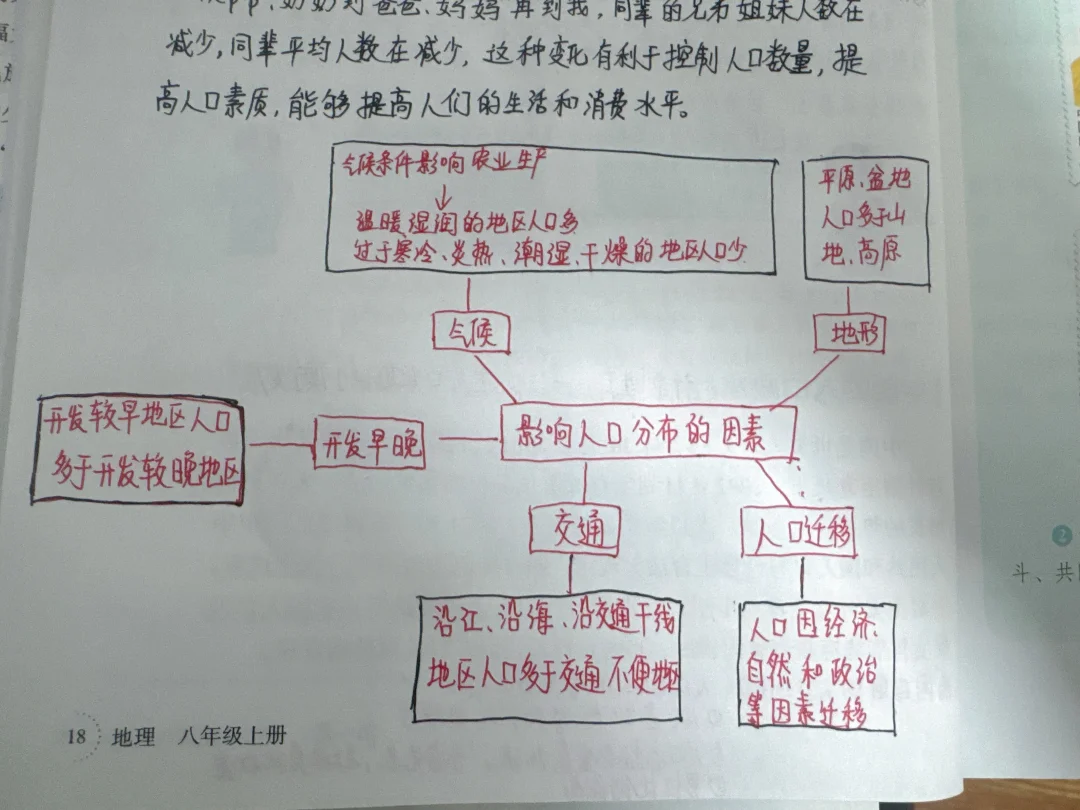 奶奶到爸爸、妈妈再到我，同辈的兄弟姐妹人数在
减少，同辈平均人数在减少，这种变化有利于控制人口数量，提
高人口素质，能够提高人们的生活和消费水平。
气候条件影响农业生产
↓
温暖湿润的地区人口多
过于寒冷、炎热、潮湿、干燥的地区人口少
平原、盆地
人口多于山
地、高原
气候
地形
开发较早地区人口
多于开发较晚地区
开发早晚
影响人口分布的因素
交通
人口迁移
沿江、沿海、沿交通干线
地区人口多于交通不便地区
人口因经济、
自然和政治
等因素迁移
18 地理 八年级上册
2
斗、共